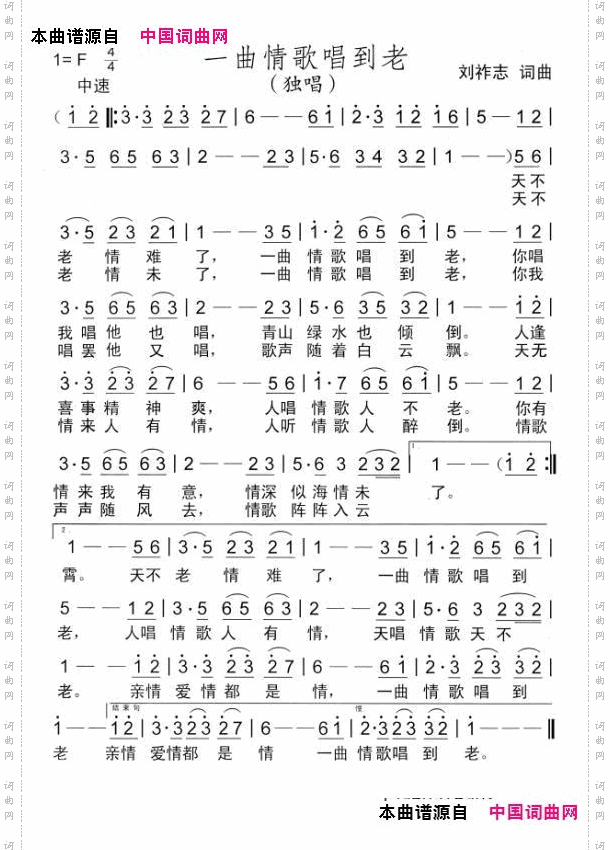 本曲谱源自 中国词曲网
1=F 4/4 一曲情歌唱到老
中速 （独唱） 刘祚志 词曲
（1 2 ‖: 3·3 2 3 2 7 | 6 — — 6 1 | 2·3 1 2 1 6 | 5 — 1 2 |
3·5 6 5 6 3 | 2 — — 2 3 | 5·6 3 4 3 2 | 1 — — ）5 6 |
天不
天不
3·5 2 3 2 1 | 1 — — 3 5 | 1·2 6 5 6 1 | 5 — — 1 2 |
老 情 难 了， 一曲 情歌唱 到 老， 你唱
老 情 未 了， 一曲 情歌唱 到 老， 你我
3·5 6 5 6 5 | 2 — — 2 3 | 5·6 3 5 3 2 | 1 — — 1 2 |
我唱他 也 唱， 青山 绿水也 倾 倒。 人逢
唱罢他 又 唱， 歌声 随着白 云 飘。 天无
3·3 2 3 2 7 | 6 — — 5 6 | 1·7 6 5 6 1 | 5 — — 1 2 |
喜事精 神 爽， 人唱 情歌人 不 老。 你有
情来人 有 情， 人听 情歌人 醉 倒。 情歌
3·5 6 5 6 3 | 2 — — 2 3 | 5·6 3 2 3 2 | 1. 1 — — （1 2 :‖
情来我 有 意， 情深 似海情未 了。
声声随 风 去， 情歌 阵阵入云
2. 1 — — 5 6 | 3·5 2 3 2 1 | 1 — — 3 5 | 1·2 6 5 6 1 |
霄。 天不 老 情 难 了， 一曲 情歌唱 到
5 — — 1 2 | 3·5 6 5 6 3 | 2 — — 2 3 | 5·6 3 2 3 2 |
老， 人唱 情歌人 有 情， 天唱 情歌天 不
1 — — 1 2 | 3·3 2 3 2 7 | 6 — — 6 1 | 2·3 2 3 2 1 |
老。 亲情 爱情都 是 情， 一曲 情歌唱 到
结束句 慢
1 — — 1 2 | 3·3 2 3 2 7 | 6 — — 6 1 | 2·3 2 3 2 1 | 1 — — ‖
老 亲情 爱情都 是 情 一曲 情歌唱 到 老。
本曲谱源自 中国词曲网